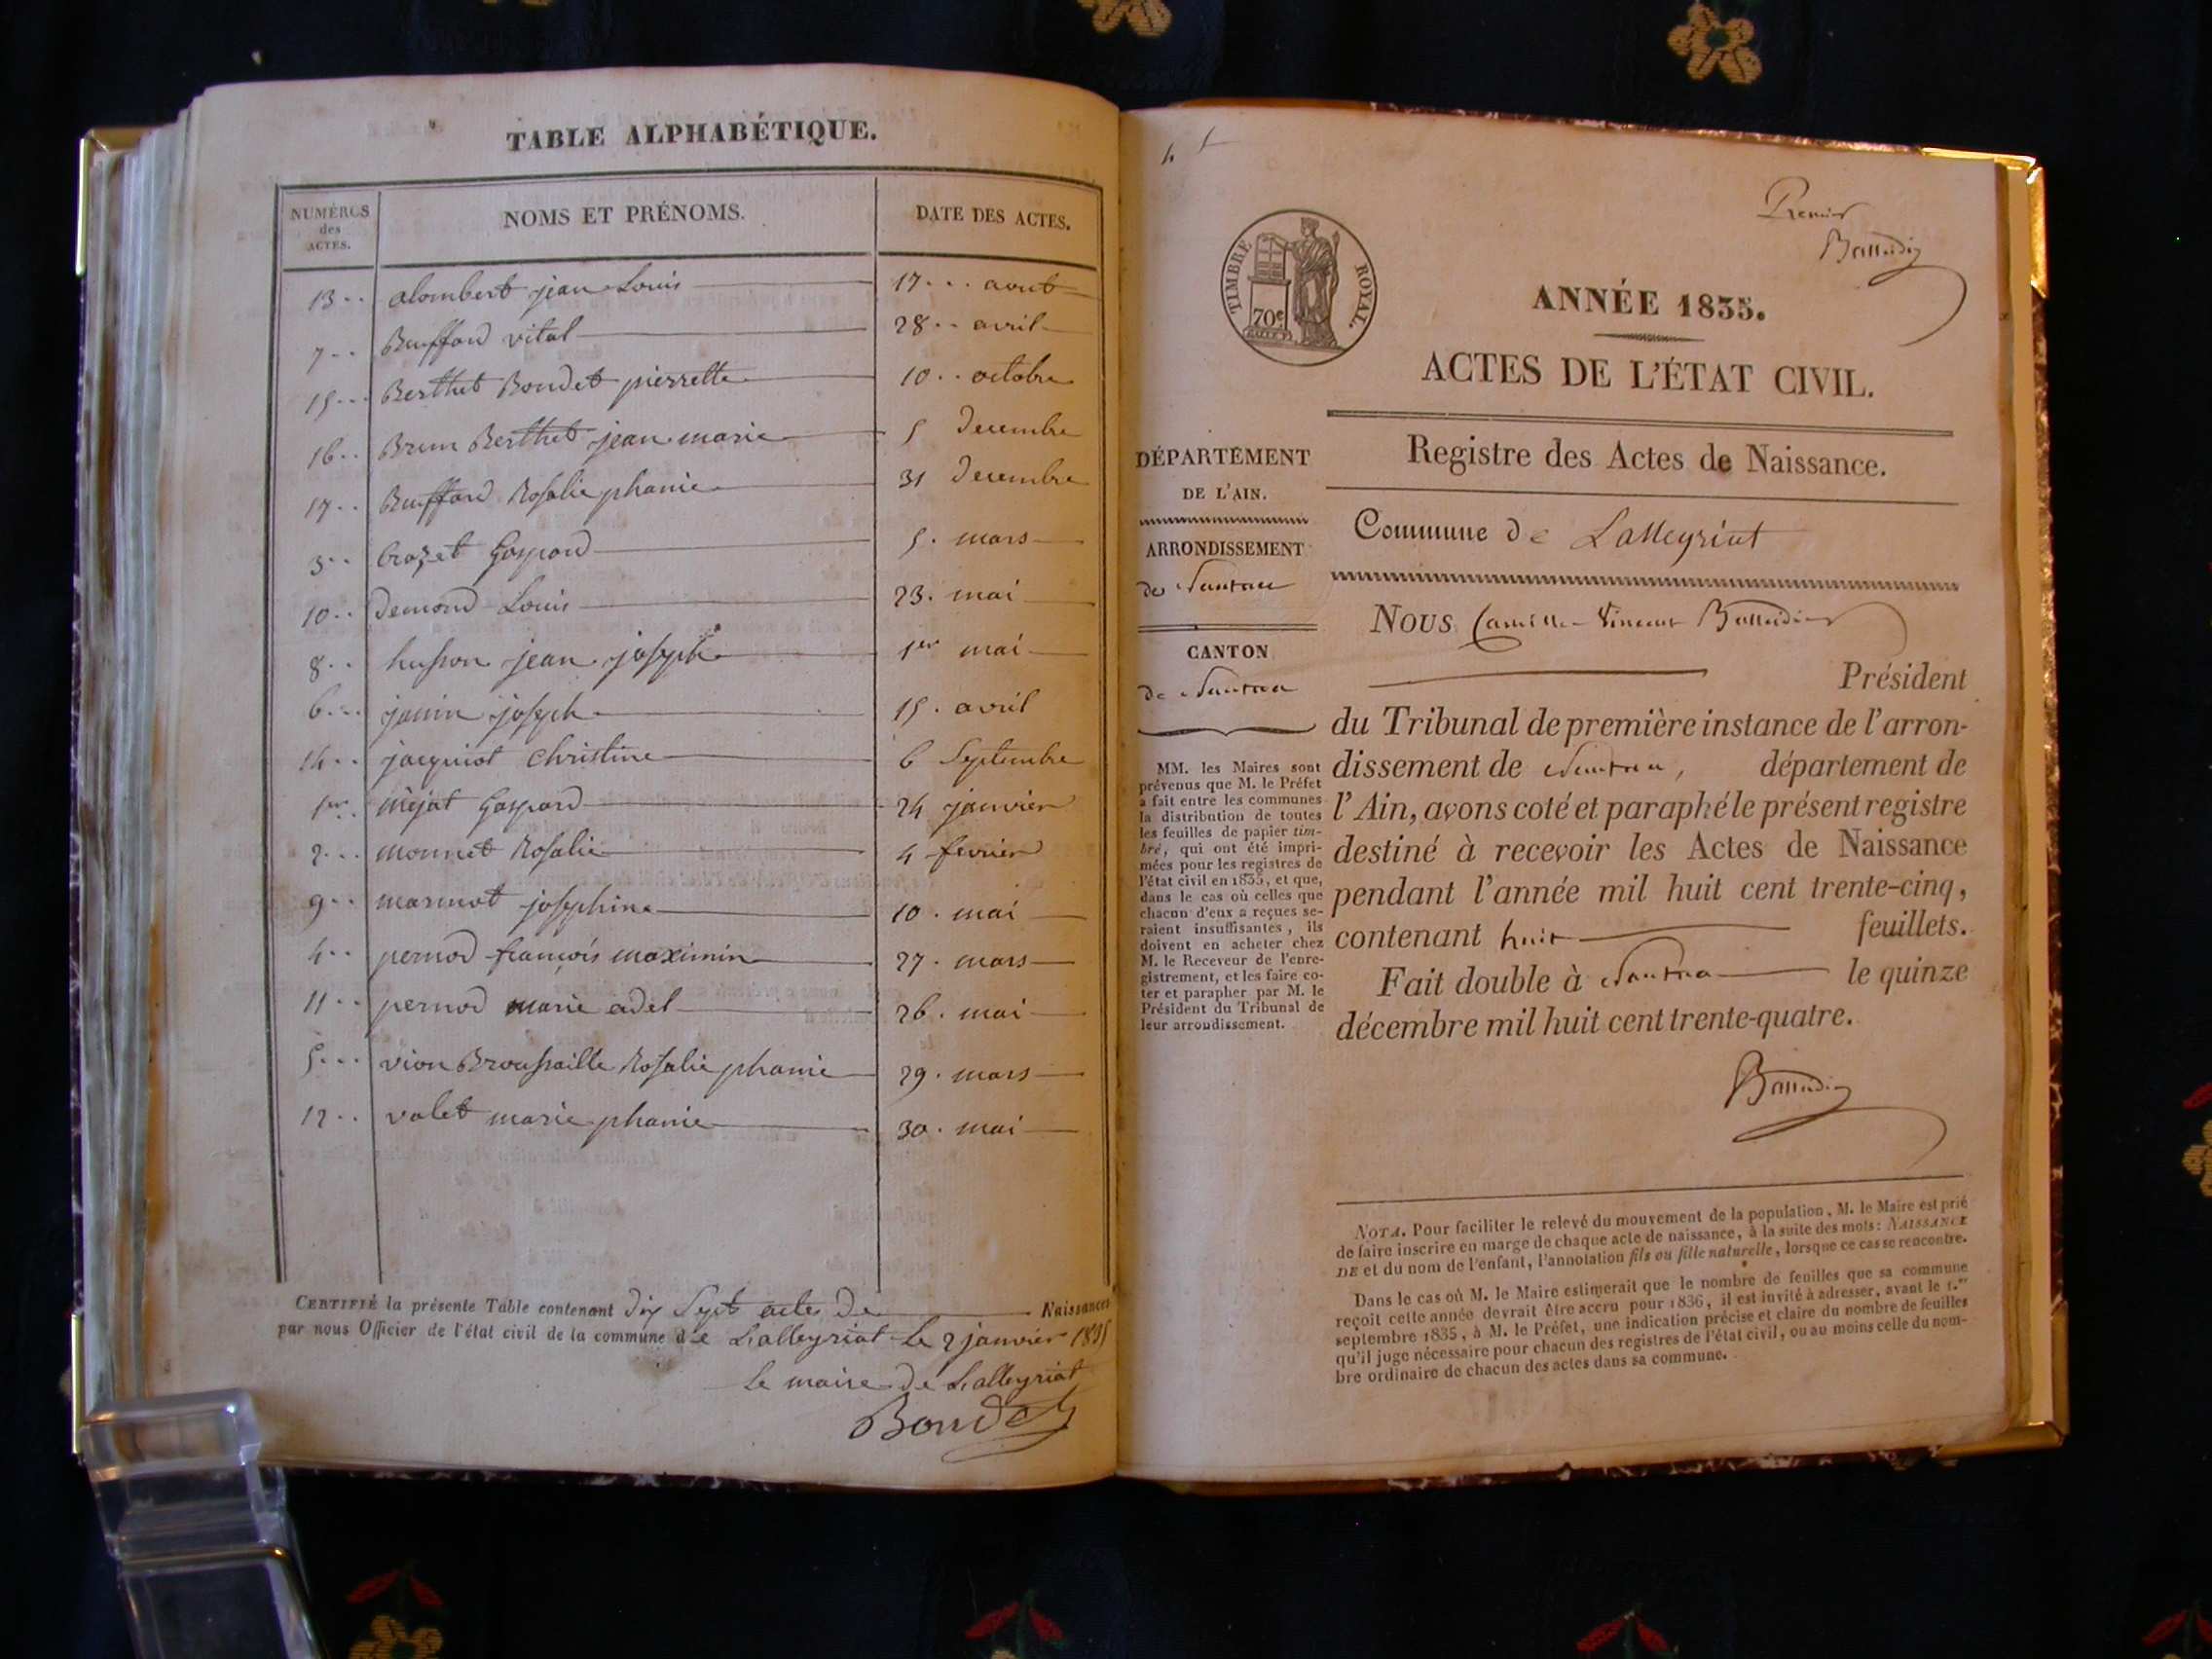 TABLE ALPHABÉTIQUE.
NUMÉROS des ACTES. NOMS ET PRÉNOMS. DATE DES ACTES.
13 alombert jean Louis 17 aout
7 Buffard vital 28 avril
15 Berthet Bondet pierrette 10 octobre
16 Brun Berthet jean marie 5 Decembre
17 Buffard Rosalie phanie 31 Decembre
3 Crozet Gaspard 5. mars
10 Demond Louis 23. mai
8 husson jean joseph 1er mai
6 janin joseph 15. avril
14 jacquiot Christine 6 Septembre
1er mejat Gaspard 24 janvier
2 monnet Rosalie 4 fevrier
9 marmot josephine 10. mai
4 pernod françois maximin 27. mars
11 pernod marie adel 26. mai
5 vion Broussaille Rosalie phanie 29. mars
12 valet marie phanie 30. mai
CERTIFIÉ la présente Table contenant dix Sept actes De Naissances
par nous Officier de l'état civil de la commune de Lalleyriat le 2 janvier 1835
Le maire de Lalleyriat
Bondet
Premier
TIMBRE ROYAL.
70c
ANNÉE 1835.
ACTES DE L'ÉTAT CIVIL.
Registre des Actes de Naissance.
DÉPARTEMENT
DE L'AIN.
ARRONDISSEMENT
de Nantua
CANTON
de Nantua
MM. les Maires sont
prévenus que M. le Préfet
a fait entre les communes
la distribution de toutes
les feuilles de papier tim-
bré, qui ont été impri-
mées pour les registres de
l'état civil en 1835, et que,
dans le cas où celles que
chacun d'eux a reçues se-
raient insuffisantes, ils
doivent en acheter chez
M. le Receveur de l'enre-
gistrement, et les faire co-
ter et parapher par M. le
Président du Tribunal de
leur arrondissement.
Commune de Lalleyriat
Nous Camille Vincent
Président
du Tribunal de première instance de l'arron-
dissement de Nantua, département de
l'Ain, avons coté et paraphé le présent registre
destiné à recevoir les Actes de Naissance
pendant l'année mil huit cent trente-cinq,
contenant huit feuillets.
Fait double à Nantua le quinze
décembre mil huit cent trente-quatre.
NOTA. Pour faciliter le relevé du mouvement de la population, M. le Maire est prié
de faire inscrire en marge de chaque acte de naissance, à la suite des mots: NAISSANCE
DE et du nom de l'enfant, l'annotation fils ou fille naturelle, lorsque ce cas se rencontre.
Dans le cas où M. le Maire estimerait que le nombre de feuilles que sa commune
reçoit cette année devrait être accru pour 1836, il est invité à adresser, avant le 1.er
septembre 1835, à M. le Préfet, une indication précise et claire du nombre de feuilles
qu'il juge nécessaire pour chacun des registres de l'état civil, ou au moins celle du nom-
bre ordinaire de chacun des actes dans sa commune.